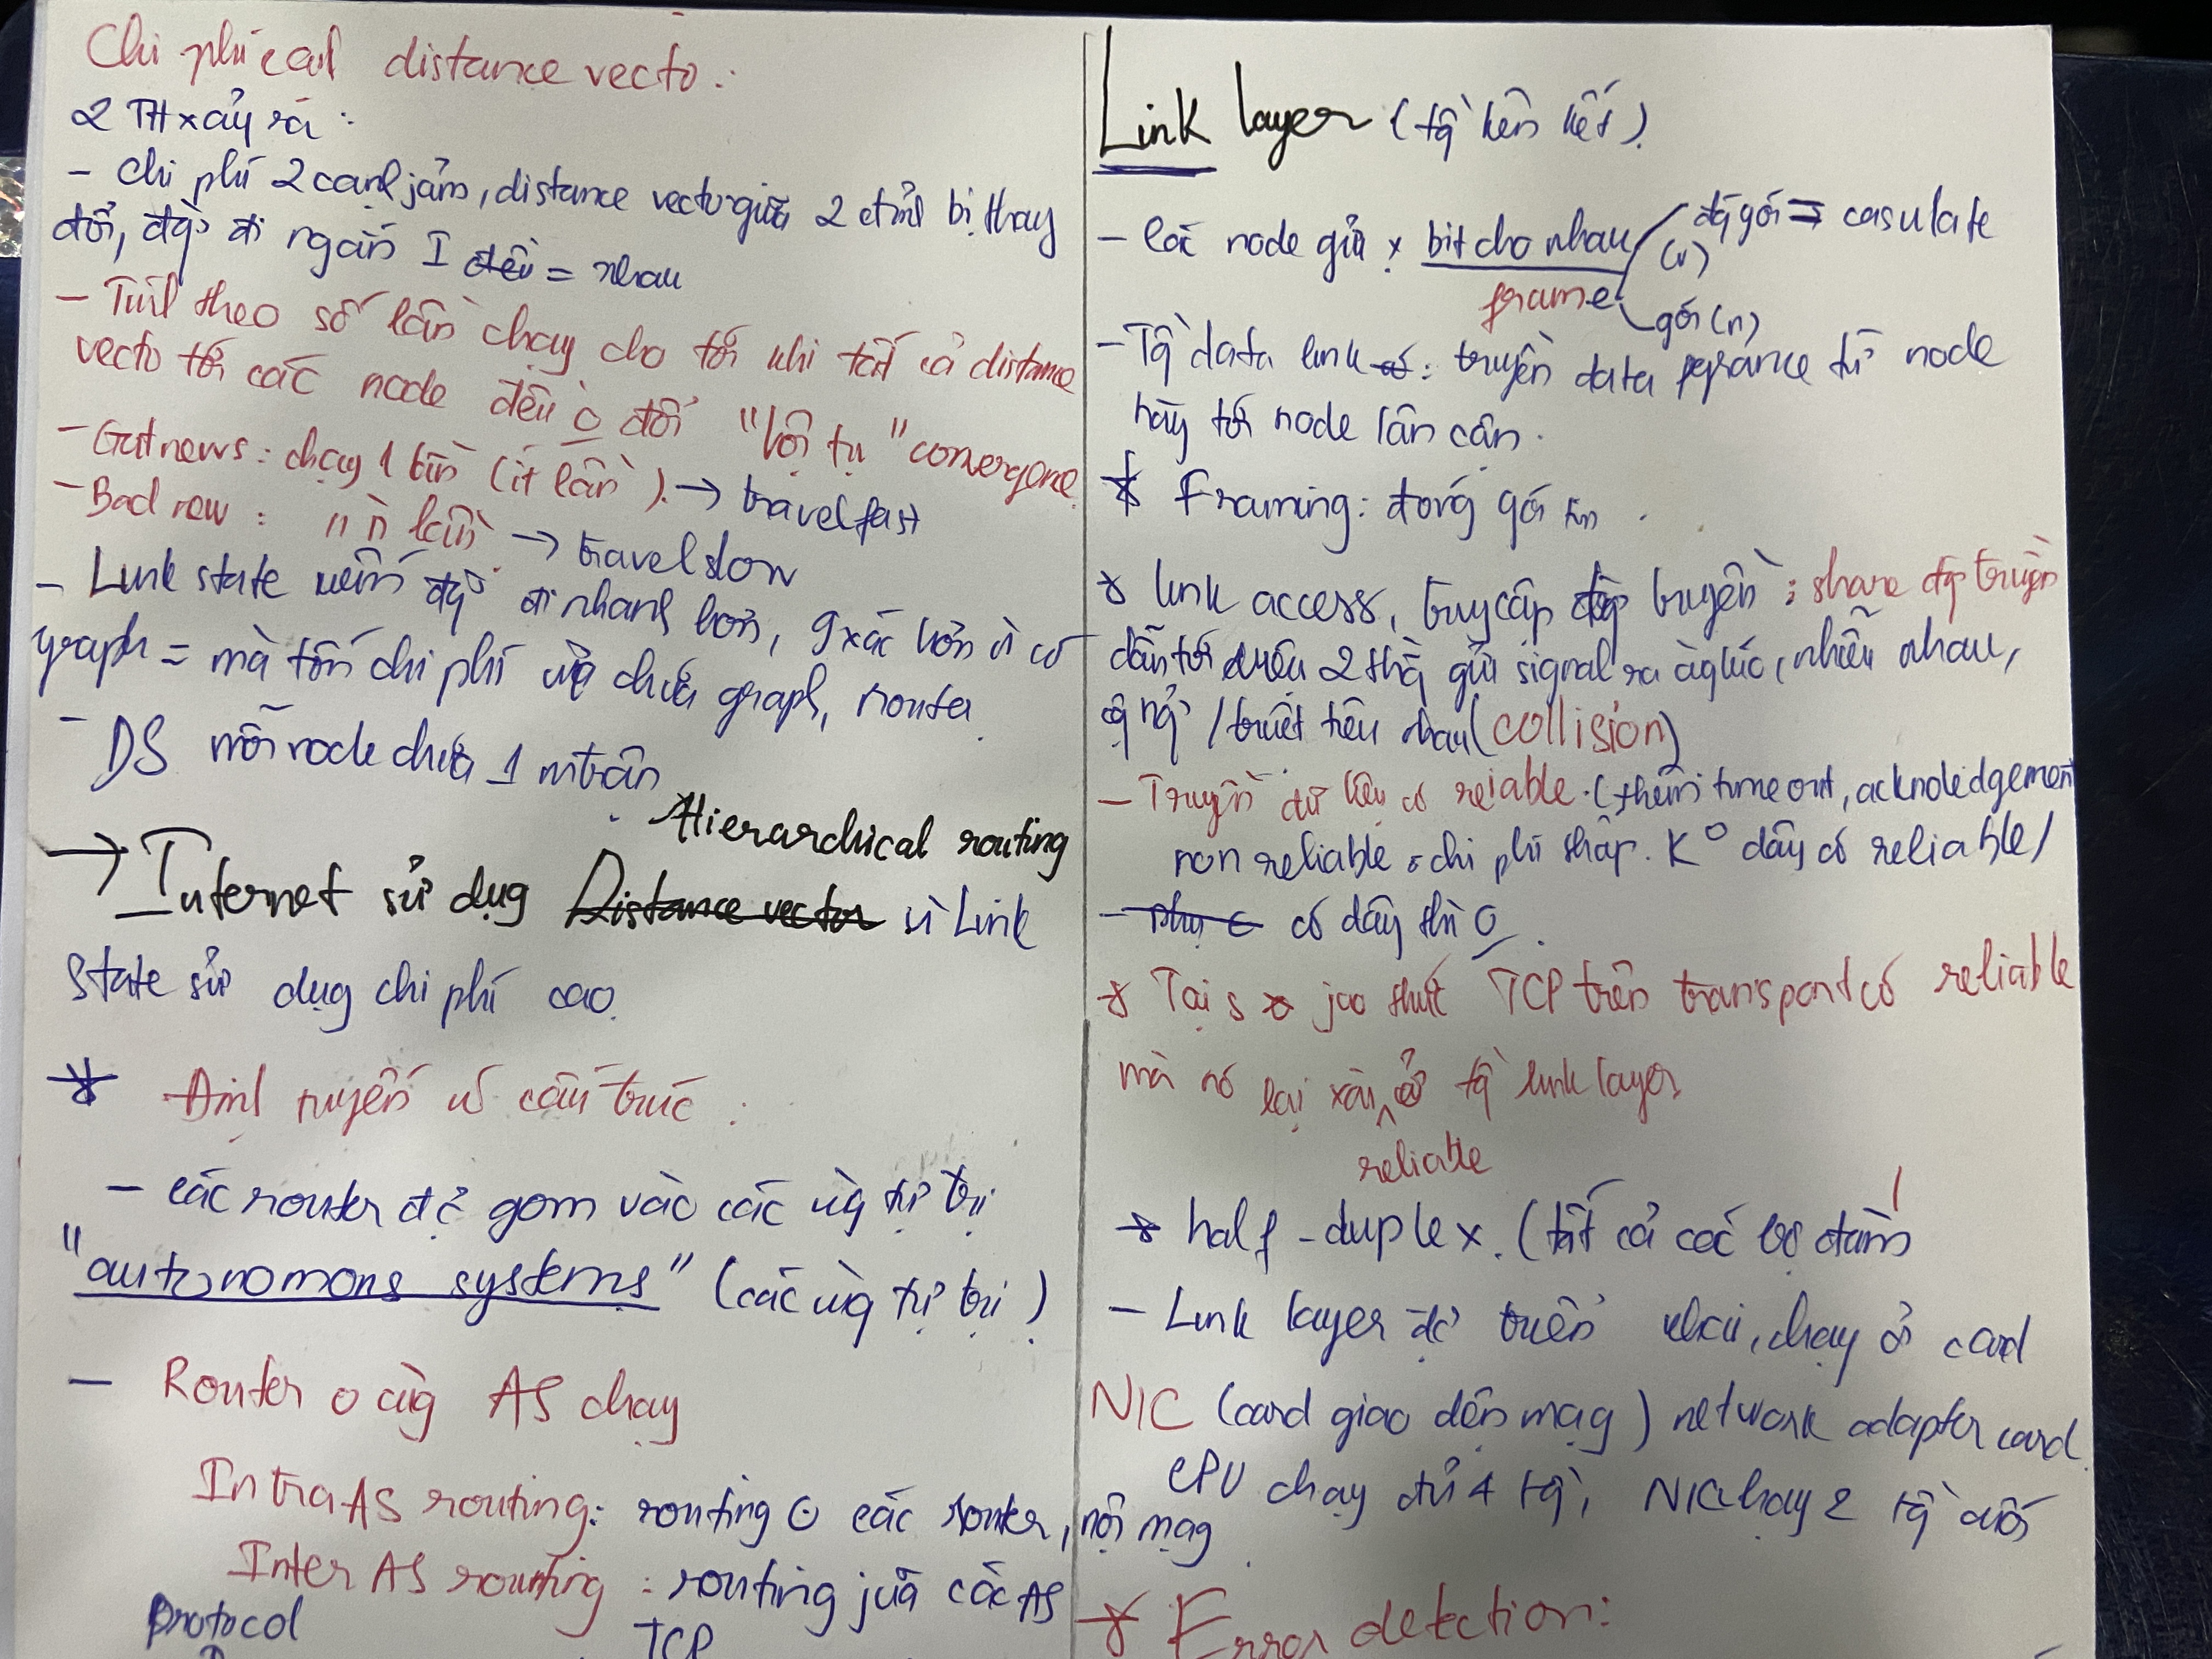 Chi phí cạnh distance vectơ:
2 TH xảy ra:
- chi phí 2 cạnh giảm, distance vectơ giữa 2 đỉnh bị thay
đổi, đg đi ngắn I đều = nhau
- Tính theo số lần chạy cho tới khi tất cả distance
vectơ tới các node đều o đổi "hội tụ" converge
- Gut news: chạy 1 lần (ít lần). → travel fast
- Bad new: " n lần → travel slow
- Link state kiếm đg đi nhanh hơn, g xác hơn vì có
graph = mà tốn chi phí việc chứa graph, router
- DS mỗi node chứa 1 ntbản
Hierarchical routing
→ Internet sử dụng Distance vector vì Link
State sử dụng chi phí cao
* Định tuyến có cấu trúc:
- các router đc gom vào các vùng tự trị
"autonomous systems" (các vùng tự trị)
- Router o cùng AS chạy
Intra AS routing: routing ở các router, nội mạng
Inter AS routing: routing giữa các AS
protocol TCP
Link layer (tầg liên kết)
- các node gửi x bit cho nhau (n) / đóg gói → casulate
frame gói (n)
- Tầg data link: truyền data frame từ node
này tới node lân cận.
* Framing: đóng gói tin
* link access, truy cập đg truyền: share đg truyền
dẫn tới dưới 2 thg gửi signal ra cùg lúc, nhiễu nhau,
triệt tiêu nhau (collision)
- Truyền dữ liệu reliable. (thêm timeout, acknowledgement
non reliable, chi phí thấp. K⁰ dây có reliable,
có dây thì o
* Tại s giao thức TCP trên transport có reliable
mà nó lại xài reliable ở tầg link layer
* half-duplex. (tất cả các bộ đàm)
- Link layer đc triển khai, chạy ở card
NIC (card giao diện mạng) network adapter card
CPU chạy đủ 4 tầg, NIC chạy 2 tầg dưới
* Error detection: